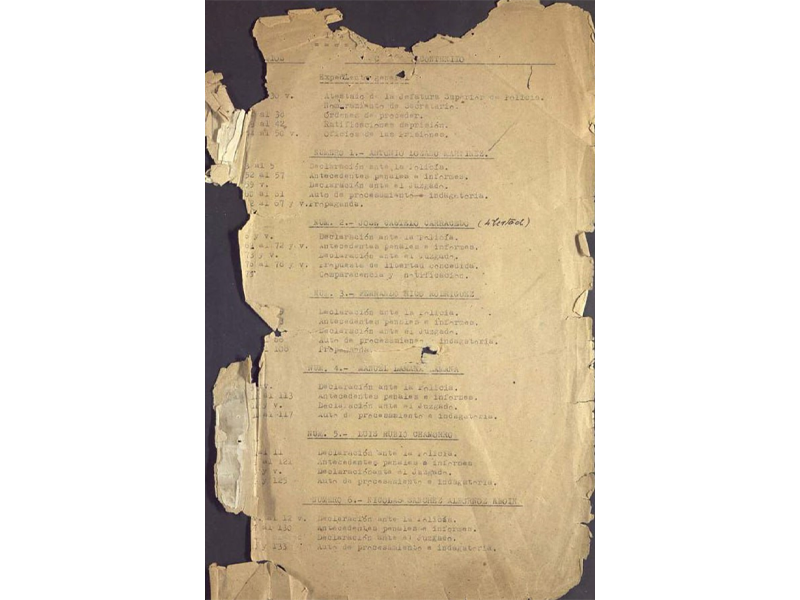 CONTENIDO
Expediente general
30 v. Atestado de la Jefatura Superior de Policía.
de Secretaría.
al 36 Órdenes de proceder.
al 42 Ratificaciones de prisión.
al 50 v. Oficios de las Prisiones.
NUMERO 1.- ANTONIO
al 5 Declaración ante la Policía.
52 al 57 Antecedentes penales e informes.
59 v. Declaración ante el Juzgado.
al 61 Auto de procesamiento e indagatoria.
al 67 y v. Propaganda.
NUM. 2.- JUAN (libertad)
y v. Declaración ante la Policía.
al 72 y v. Antecedentes penales e informes.
y v. Declaración ante el Juzgado.
al 76 y v. Propuesta de libertad concedida.
Comparecencia y notificación.
NUM. 3.- FERNANDO RICO RODRIGUEZ
Declaración ante la Policía.
Antecedentes penales e informes.
Declaración ante el Juzgado.
Auto de procesamiento e indagatoria.
108 Propaganda.
NUM. 4.- MANUEL LAMANA LAMANA
v. Declaración ante la Policía.
al 113 Antecedentes penales e informes.
y v. Declaración ante el Juzgado.
al 117 Auto de procesamiento e indagatoria.
NUM. 5.- LUIS RUBIO CHAMORRO
al 11 Declaración ante la Policía.
al 121 Antecedentes penales e informes
y v. Declaración ante el Juzgado.
y 125 Auto de procesamiento e indagatoria.
NUMERO 6.- NICOLAS SANCHEZ ALBORNOZ ABOIN
al 12 v. Declaración ante la Policía.
al 130 Antecedentes penales e informes.
Declaración ante el Juzgado.
y 133 Auto de procesamiento e indagatoria.